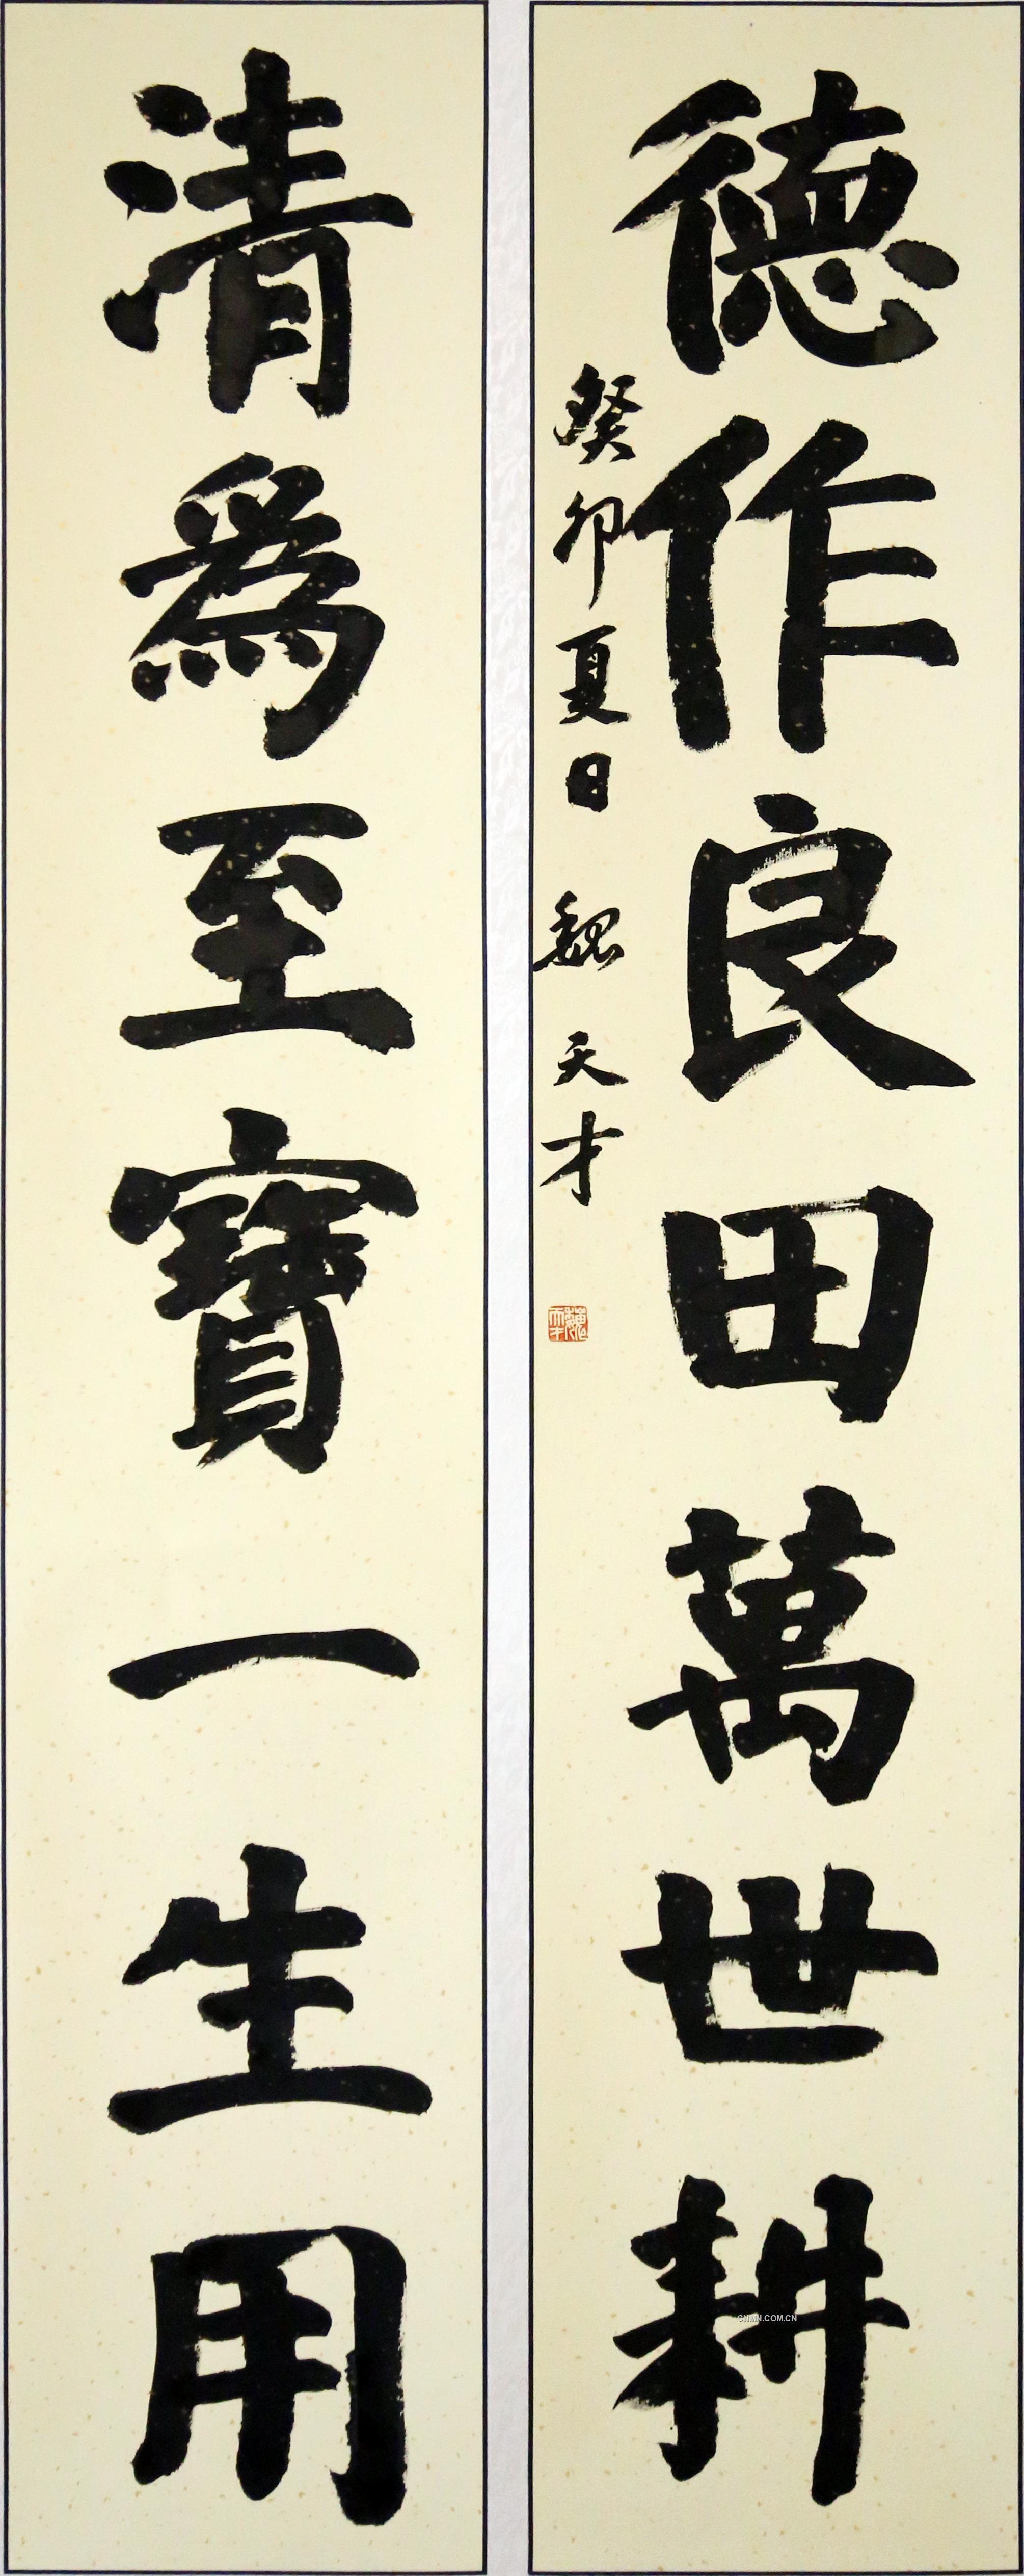 德作良田萬世耕
癸卯夏日 魏天才
魏天才
清為至寶一生用
CNMN.COM.CN